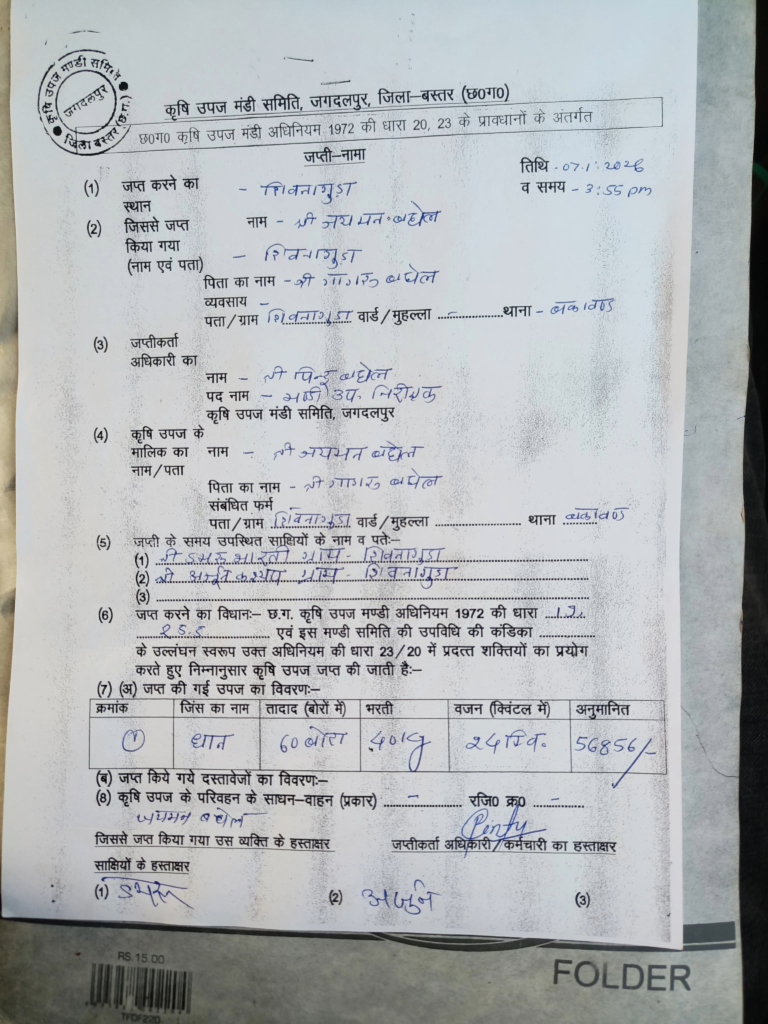 कृषि उपज मण्डी समिति
जगदलपुर
जिला बस्तर (छ.ग.)
कृषि उपज मंडी समिति, जगदलपुर, जिला-बस्तर (छ०ग०)
छ०ग० कृषि उपज मंडी अधिनियम 1972 की धारा 20, 23 के प्रावधानों के अंतर्गत
जप्ती-नामा
तिथि - 07.1.2026
(1) जप्त करने का स्थान - शिवनागुड़ा व समय - 3:55 pm
(2) जिससे जप्त नाम - श्री जयमन बघेल
किया गया
(नाम एवं पता) - शिवनागुड़ा
पिता का नाम - श्री गागरू बघेल
व्यवसाय -
पता/ग्राम शिवनागुड़ा वार्ड/मुहल्ला ...-... थाना - बकावण्ड
(3) जप्तीकर्ता
अधिकारी का
नाम - श्री पिन्टू बघेल
पद नाम - मण्डी उप निरीक्षक
कृषि उपज मंडी समिति, जगदलपुर
(4) कृषि उपज के
मालिक का नाम - श्री जयमन बघेल
नाम/पता
पिता का नाम - श्री गागरू बघेल
संबंधित फर्म
पता/ग्राम शिवनागुड़ा वार्ड/मुहल्ला ............ थाना बकावण्ड
(5) जप्ती के समय उपस्थित साक्षियों के नाम व पतेः-
(1) श्री डमरू भारती ग्राम - शिवनागुड़ा
(2) श्री अर्जुन कश्यप ग्राम - शिवनागुड़ा
(3)
(6) जप्त करने का विधानः- छ.ग. कृषि उपज मण्डी अधिनियम 1972 की धारा 19,
............ एवं इस मण्डी समिति की उपविधि की कंडिका ............
के उल्लंघन स्वरूप उक्त अधिनियम की धारा 23/20 में प्रदत्त शक्तियों का प्रयोग
करते हुए निम्नानुसार कृषि उपज जप्त की जाती हैः-
(7) (अ) जप्त की गई उपज का विवरणः-
क्रमांक जिंस का नाम तादाद (बोरों में) भरती वजन (क्विंटल में) अनुमानित
1 धान 60 बोरा 40 kg 24 क्वि. 56856/-
(ब) जप्त किये गये दस्तावेजों का विवरणः-
(8) कृषि उपज के परिवहन के साधन-वाहन (प्रकार) ...-... रजि0 क्र0 ...-...
जयमन बघेल
जिससे जप्त किया गया उस व्यक्ति के हस्ताक्षर जप्तीकर्ता अधिकारी/कर्मचारी का हस्ताक्षर
साक्षियों के हस्ताक्षर
(1) डमरू (2) अर्जुन (3)
RS.15.00
TFDF220
FOLDER